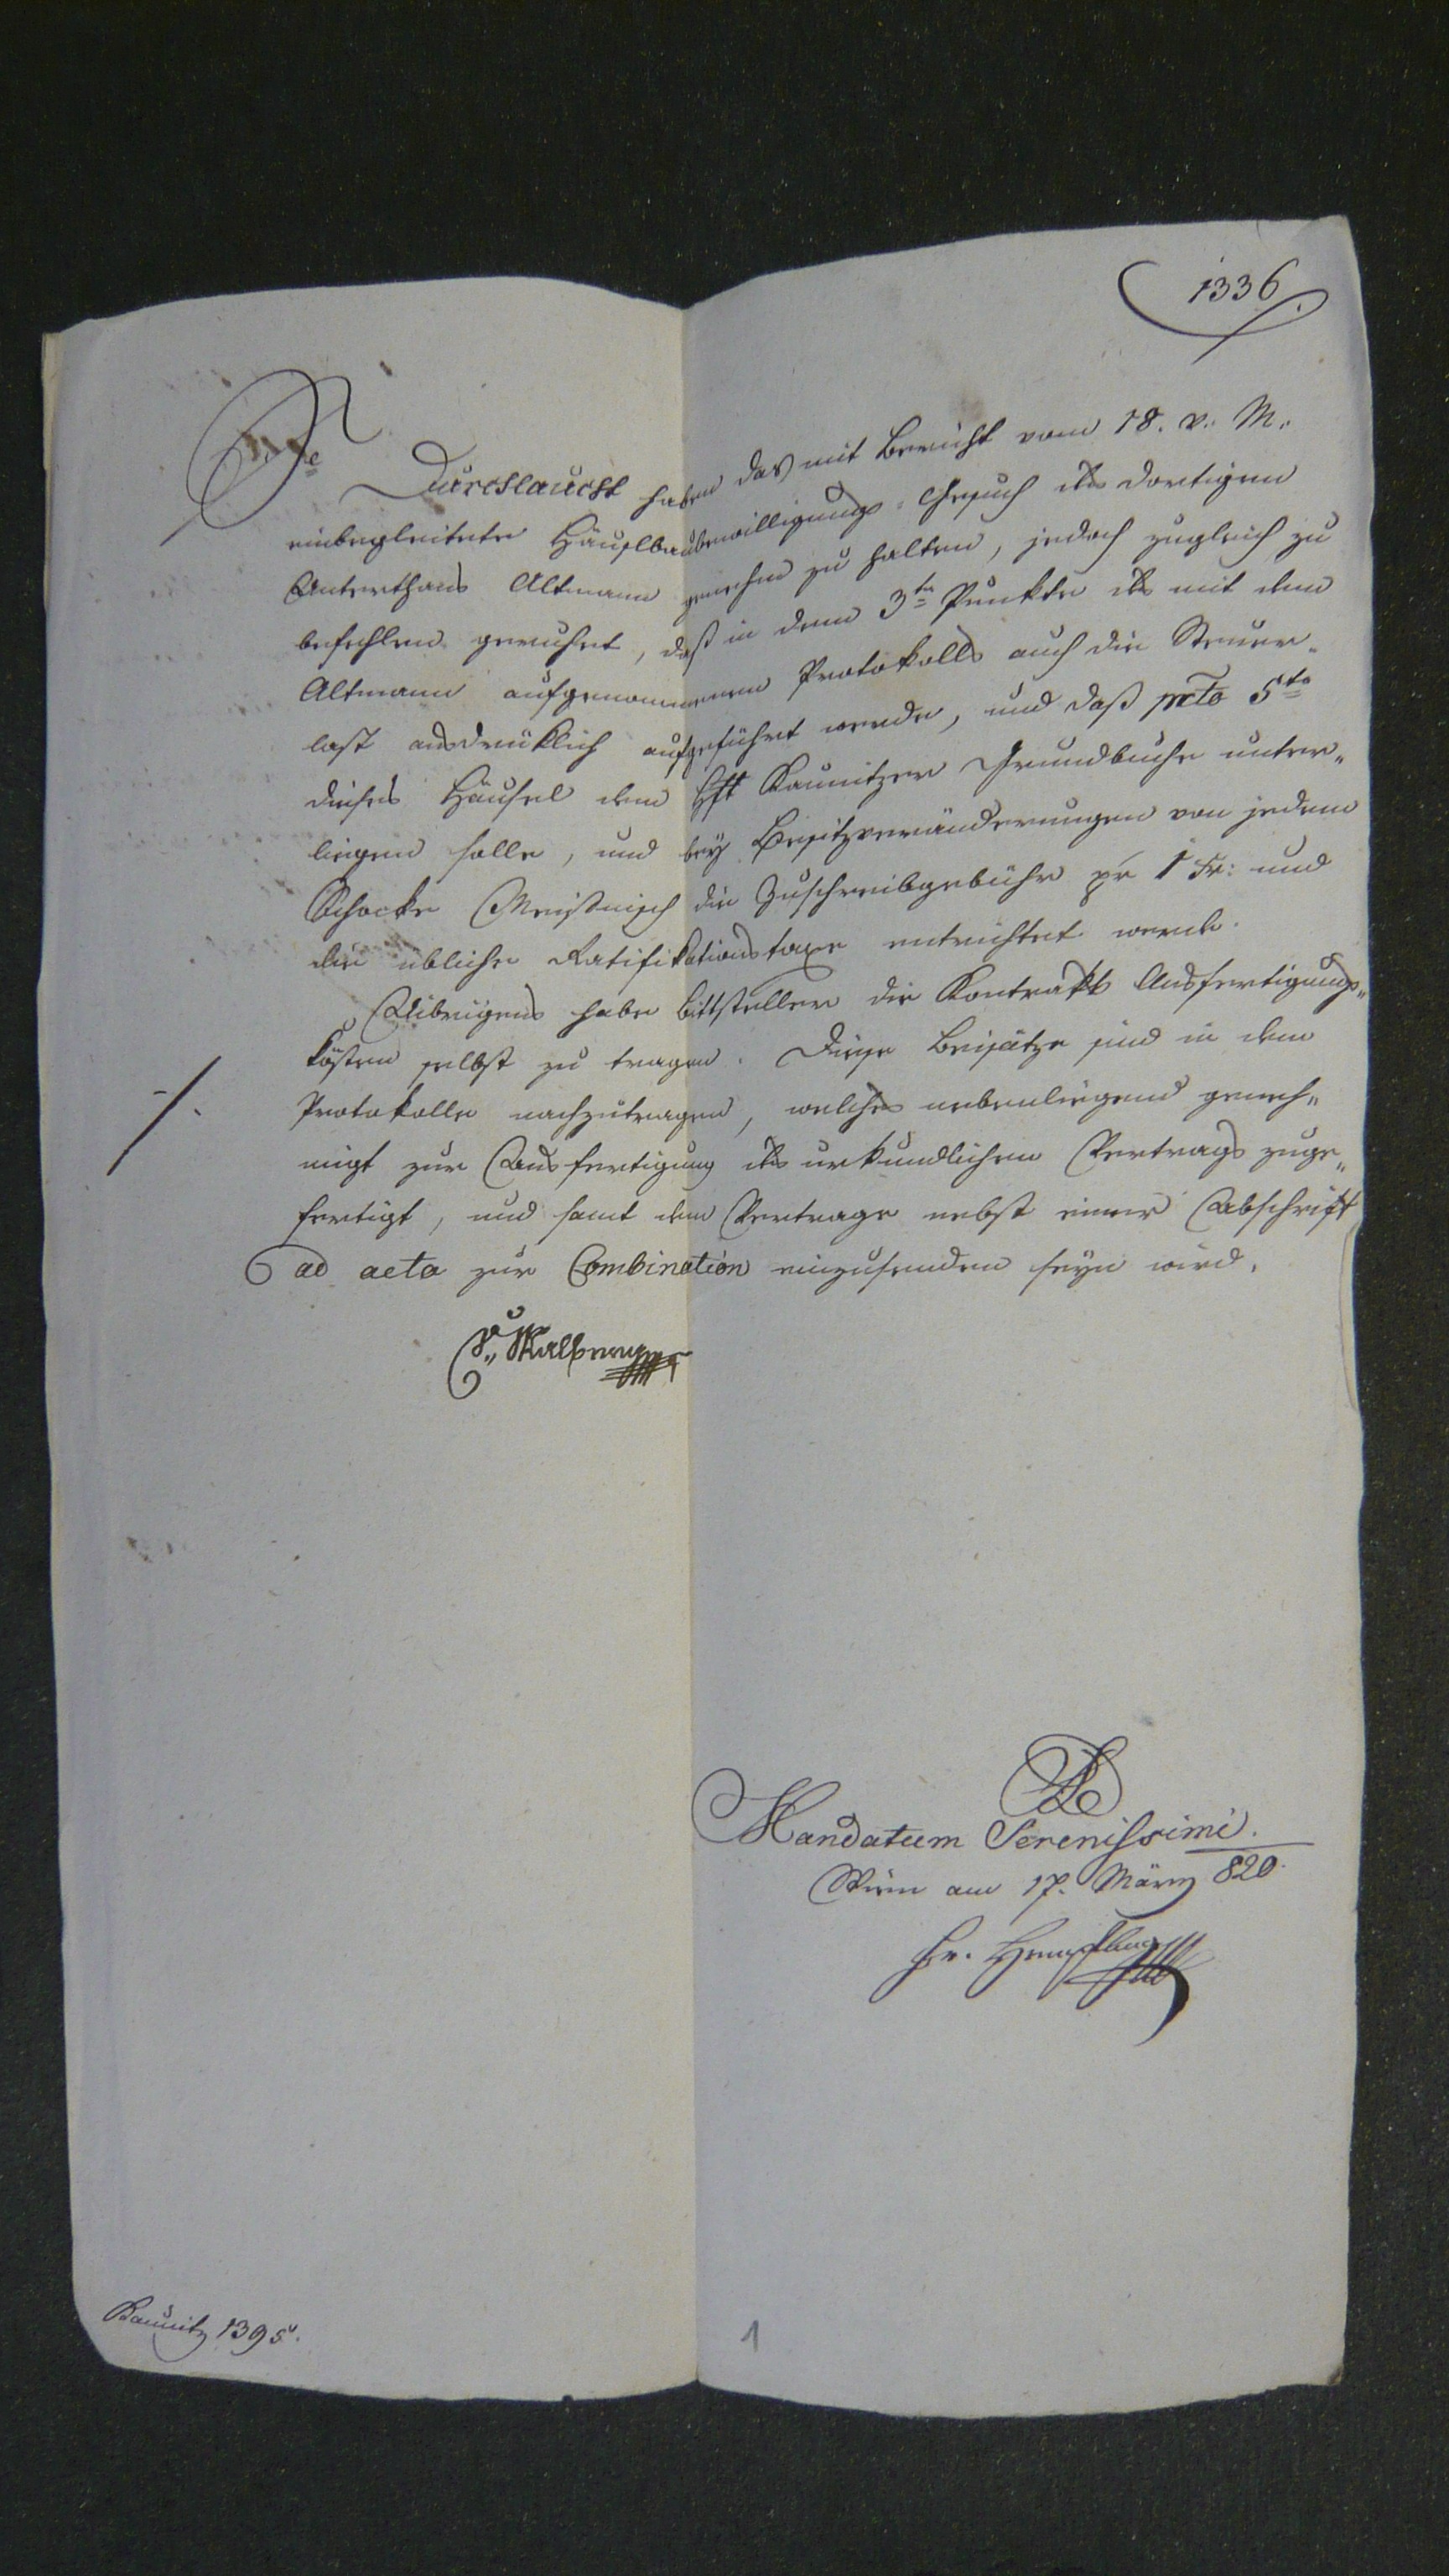 1336.
Se Durchlaucht haben das mit Bericht vom 18. v. M.
einbegleitete Häuslbaubewilligungs-Gesuch des dortigen
Unterthans Altmann genehm zu halten, jedoch zugleich zu
befehlen geruhet, daß in dem 3ten Punkte des mit dem
Altmann aufgenommenen Protokolls auch die Steuer-
last ausdrüklich aufgeführt werde, und daß pcto 5to
dieses Häusel dem Hft Kaunitzer Grundbuche unter„
liegen solle, und bey Besitzveränderungen von jedem
Schocke Meißnisch die Zuschreibgebühr pr 1 Kr: und
die übliche Ratifikationstaxe entrichtet werde.
Uibrigens habe Bittsteller die Kontrakts Ausfertigungs„
kösten selbst zu tragen. Diese Beisätze sind in dem
./. Protokolle nachzutragen, welches nebenliegend geneh„
migt zur Ausfertigung des urkundlichen Vertrags zuge„
fertigt, und samt dem Vertrage nebst einer Abschrift
ad acta zur Combination einzusenden seyn wird.
Mandatum Serenissimi.
Wien am 17. März 820.
Kaunitz 1395.
1